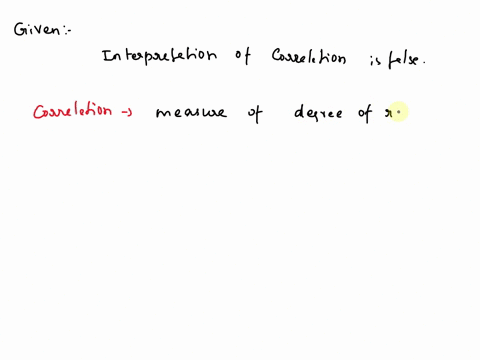 Given:-
Interpretation of Correlation is false.
Correlation → measure of degree of r